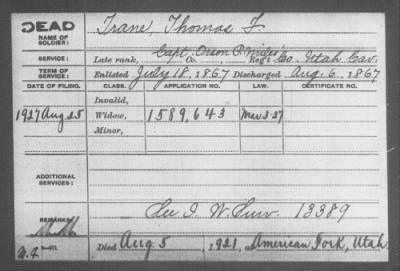 DEAD
NAME OF SOLDIER: Trane, Thomas F.
Capt. Orson P. Miles'
SERVICE: Late rank, Co. Reg't Co. Utah Cav.
TERM OF SERVICE: Enlisted July 18, 1867 Discharged Aug. 6, 1867
DATE OF FILING. CLASS. APPLICATION NO. LAW. CERTIFICATE NO.
Invalid,
1927 Aug 25 Widow, 1589,643 Mar 3-27
Minor,
ADDITIONAL SERVICES:
See I. W. Surv. 13389
REMARKS:
Died Aug 5, 1921, American Fork, Utah